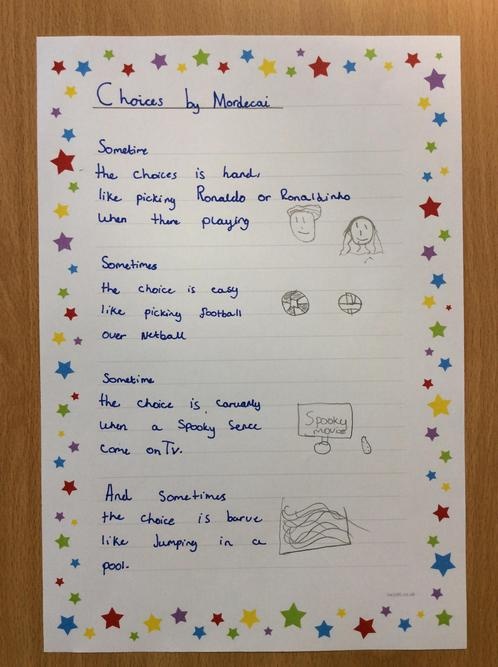 Choices by Mordecai
Sometime
the choices is hard,
like picking Ronaldo or Ronaldinho
when there playing
Sometimes
the choice is easy
like picking football
over Netball
Sometime
the choice is, carwardly
when a Spooky Sence
come on Tv.
Spooky
movie
And Sometimes
the choice is barve
like Jumping in a
pool.